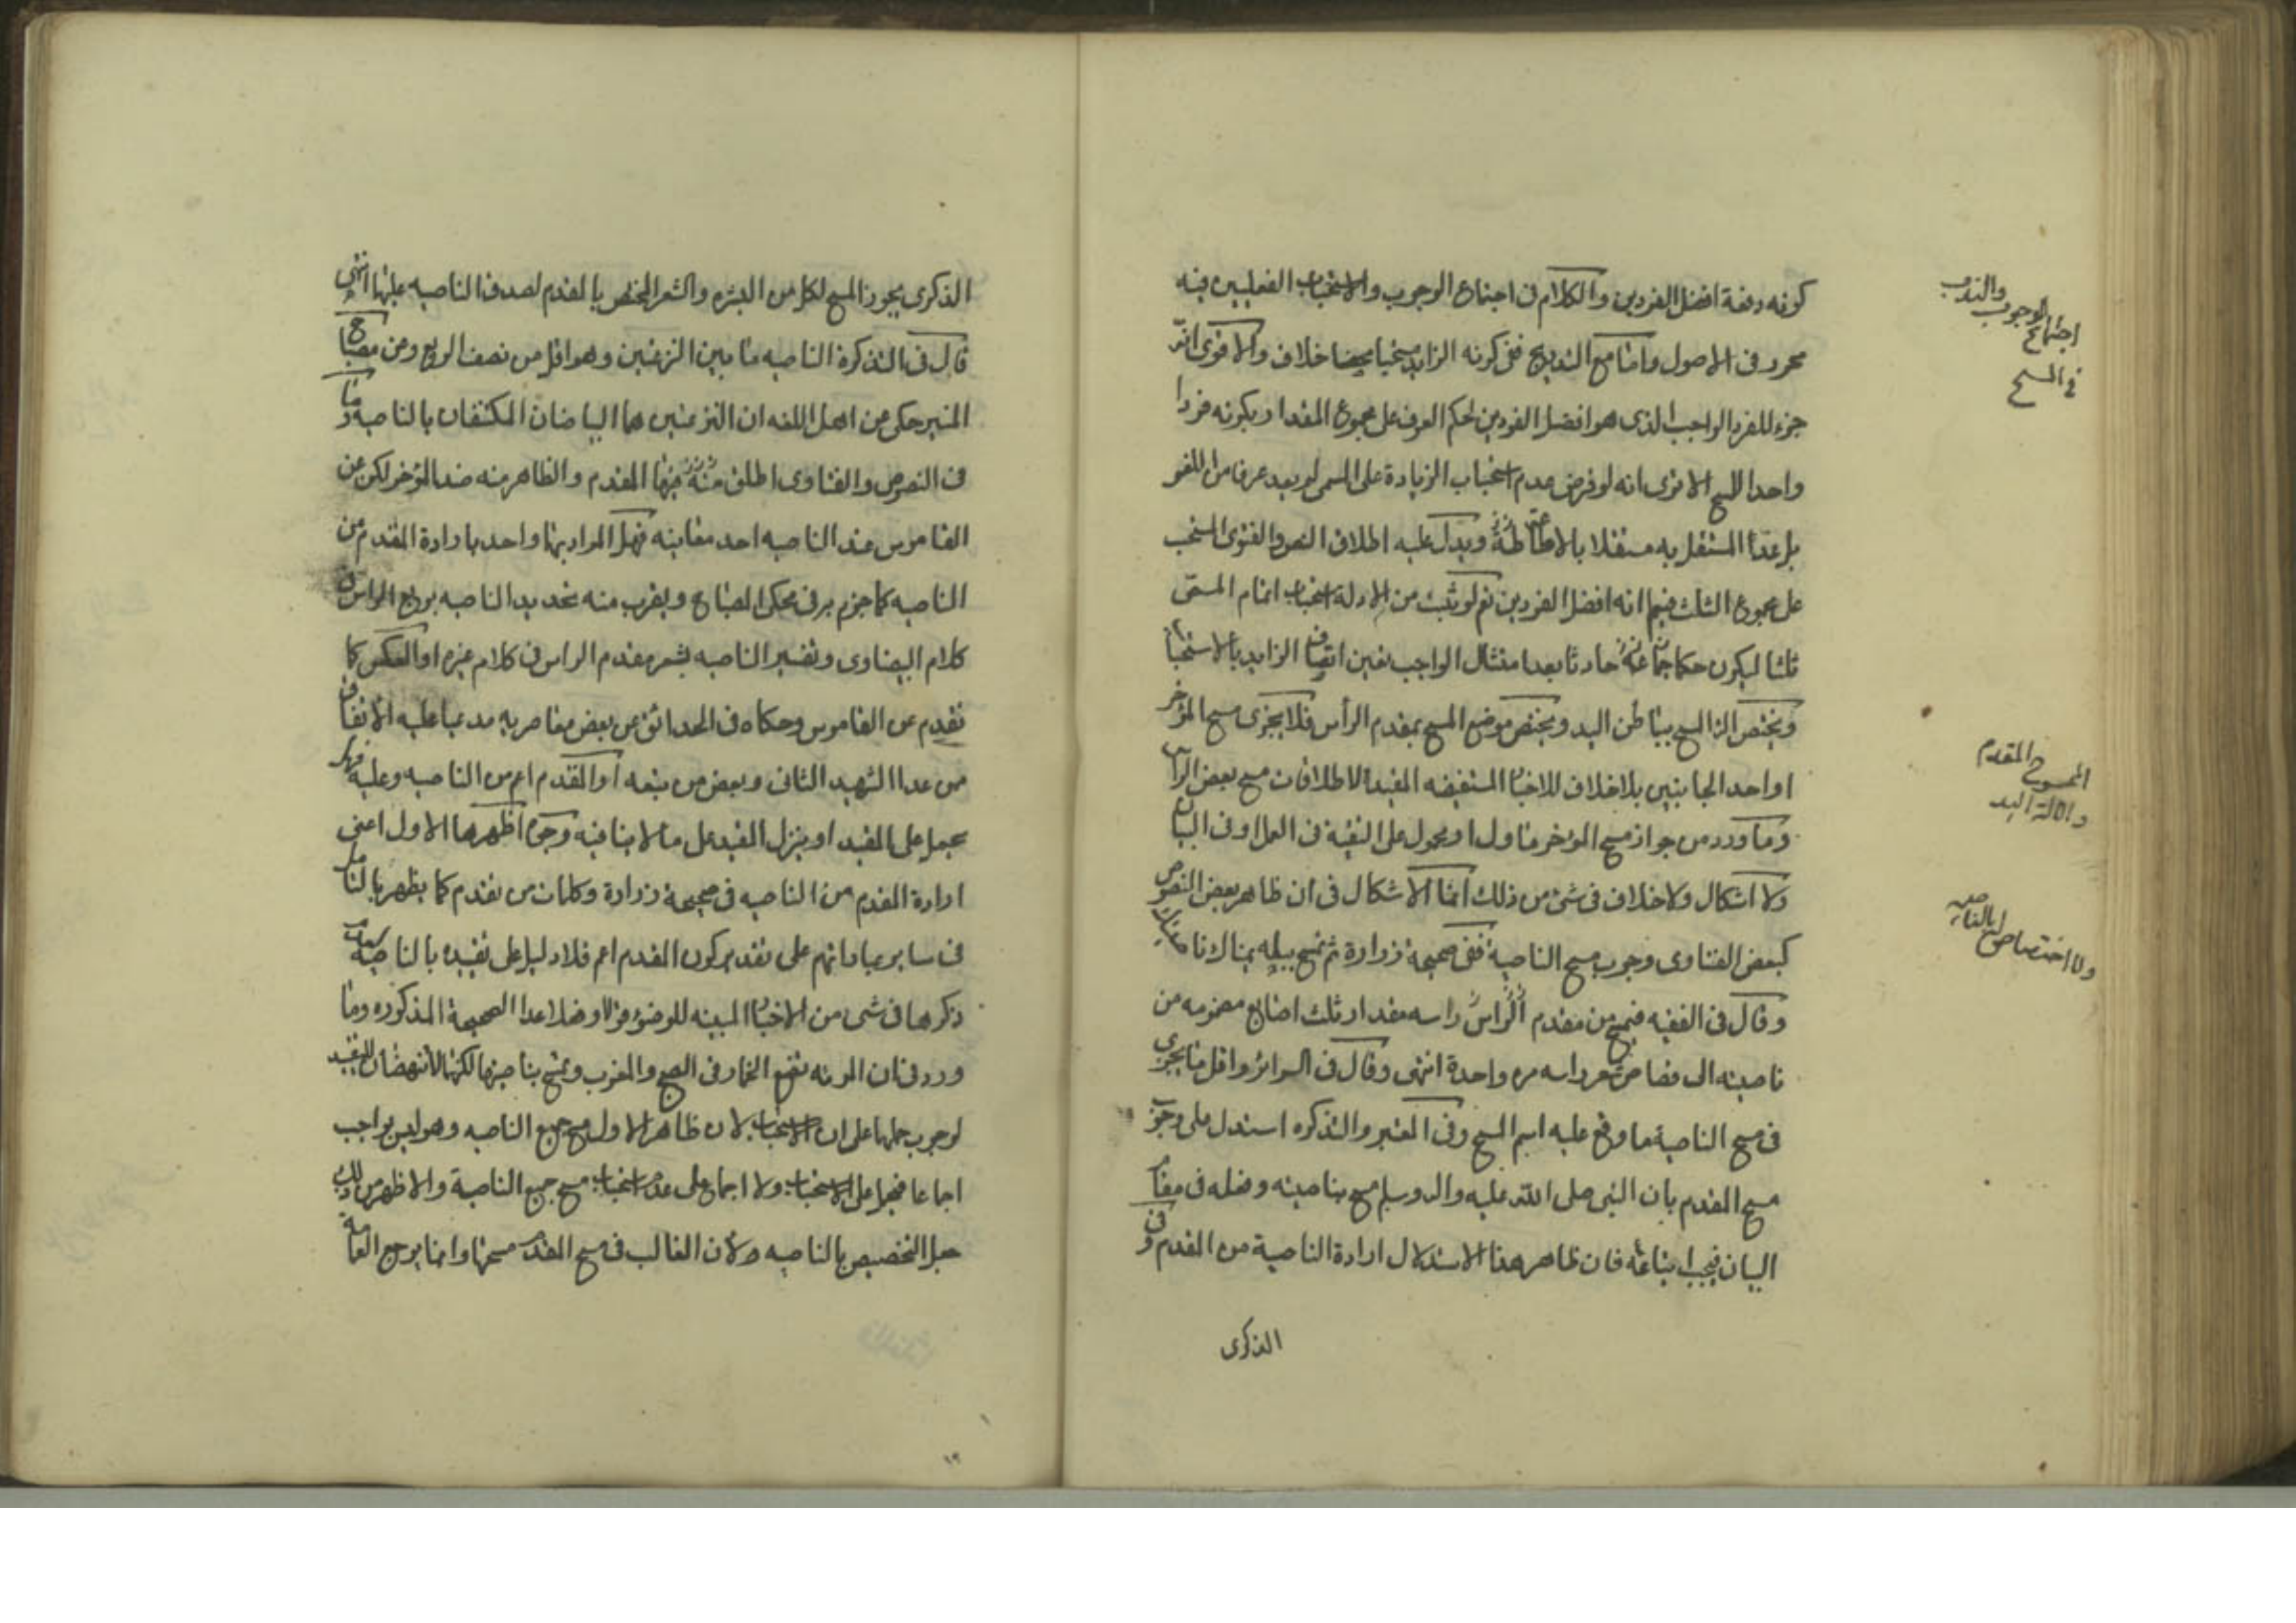 كونه دفعة افضل الفردين والكلام فى اجتماع الوجوب والاستحباب الفعليين فيه
محرر فى الاصول واما مع التدريج ففى كونه الزايد مستحبا محضا خلاف والاقوى انه
جزء للفرد الواجب الذى هو افضل الفردين لحكم العرف على مجموع المقدار بكونه فردا
واحدا للمسح الا ترى انه لو فرض عدم استحباب الزيادة على المسمى لم يعد عرفا من اللغو
بل عد المشتغل به مشتغلا بالاطاعة ويدل عليه اطلاق النص والفتوى المستحب
على مجموع الثلث فيهما انه افضل الفردين نعم لو ثبت من الادلة استحباب اتمام المسمى
ثلثا ليكون حكما حادثا بعد امتثال الواجب تعين اتصاف الزايد بالاستحباب
ويختص الة المسح بباطن اليد ويختص موضع المسح بمقدم الرأس فلا يجزى مسح المؤخر
او احد الجانبين بلا خلاف للاخبار المستفيضه المقيدة لاطلاقات مسح بعض الراس
وما ورد من جواز مسح المؤخر ماول او محمول على التقية فى العمل او فى البيان
ولا اشكال ولا خلاف فى شئ من ذلك انما الاشكال فى ان ظاهر بعض النصوص
كبعض الفتاوى وجوب مسح الناصية ففى صحيحة زرارة ثم تمسح ببلة يمناك ناصيتك
وقال فى الفقيه فيمسح من مقدم راسه مقدار ثلث اصابع مضمومه من
ناصيته الى قصاص شعر راسه مره واحدة انتهى وقال فى السرائر واقل ما يجزى
فى مسح الناصية ما وقع عليه اسم المسح وفى المعتبر والتذكره استدل على وجوب
مسح المقدم بان النبى صلى الله عليه واله وسلم مسح بناصيته وفعله فى مقام
البيان فيجب اتباعه فان ظاهر هذا الاستدلال ارادة الناصية من المقدم وفى
الذكرى
اجتماع الوجوب والندب
فى المسح
الممسوح المقدم
والالة اليد
ولا اختصاص بالناصيه
الذكرى يجوز المسح لكل من البشره والشعر المختص بالمقدم لصدق الناصيه عليها انتهى
قال فى التذكرة الناصيه ما بين النزعتين وهو اقل من نصف الربع وعن مصباح
المنير حكى عن اهل اللغه ان النزعتين هما البياضان المكتنفان بالناصيه وما
فى النصوص والفتاوى اطلق فيها المقدم والظاهر منه ضد المؤخر لكن عن
القاموس عند الناصيه احد معانيه فهل المراد بهما واحد بارادة المقدم من
الناصيه كما جزم به فى محكى المصباح ويقرب منه تحديد الناصيه بربع الراس فى
كلام البيضاوى وتفسير الناصيه بشعر مقدم الراس فى كلام غيره او العكس كما
تقدم عن القاموس وحكاه فى الحدائق عن بعض معاصريه مدعيا عليه الاتفاق
من عدا الشهيد الثانى وبعض من تبعه او المقدم اعم من الناصيه وعليه فهل
يحمل على المقيد او ينزل المقيد على ما لا ينافيه وجوه اظهرها الاول اعنى
ارادة المقدم من الناصيه فى صحيحة زرارة وكلمات من تقدم كما يظهر بالتامل
فى ساير عباداتهم على تقدير كون المقدم اعم فلا دليل على تقييده بالناصيه
ذكرها فى شى من الاخبار المبينه للوضوء قولا وفعلا عدا الصحيحة المذكوره وما
ورد فى ان المرئه تضع الخمار فى الصبح والمغرب وتمسح بناصيتها لكنها لا تنهضان للتقييد
لوجوب حملها على الاستحباب لان ظاهر الاول مسح جميع الناصيه وهو ليس بواجب
اجماعا فيحمل على الاستحباب ولا اجماع على عدم استحباب مسح جميع الناصية والاظهر من ذلك
حمل التخصيص بالناصيه ولان الغالب فى مسح المقدم مسحها وانما يرجع العامة